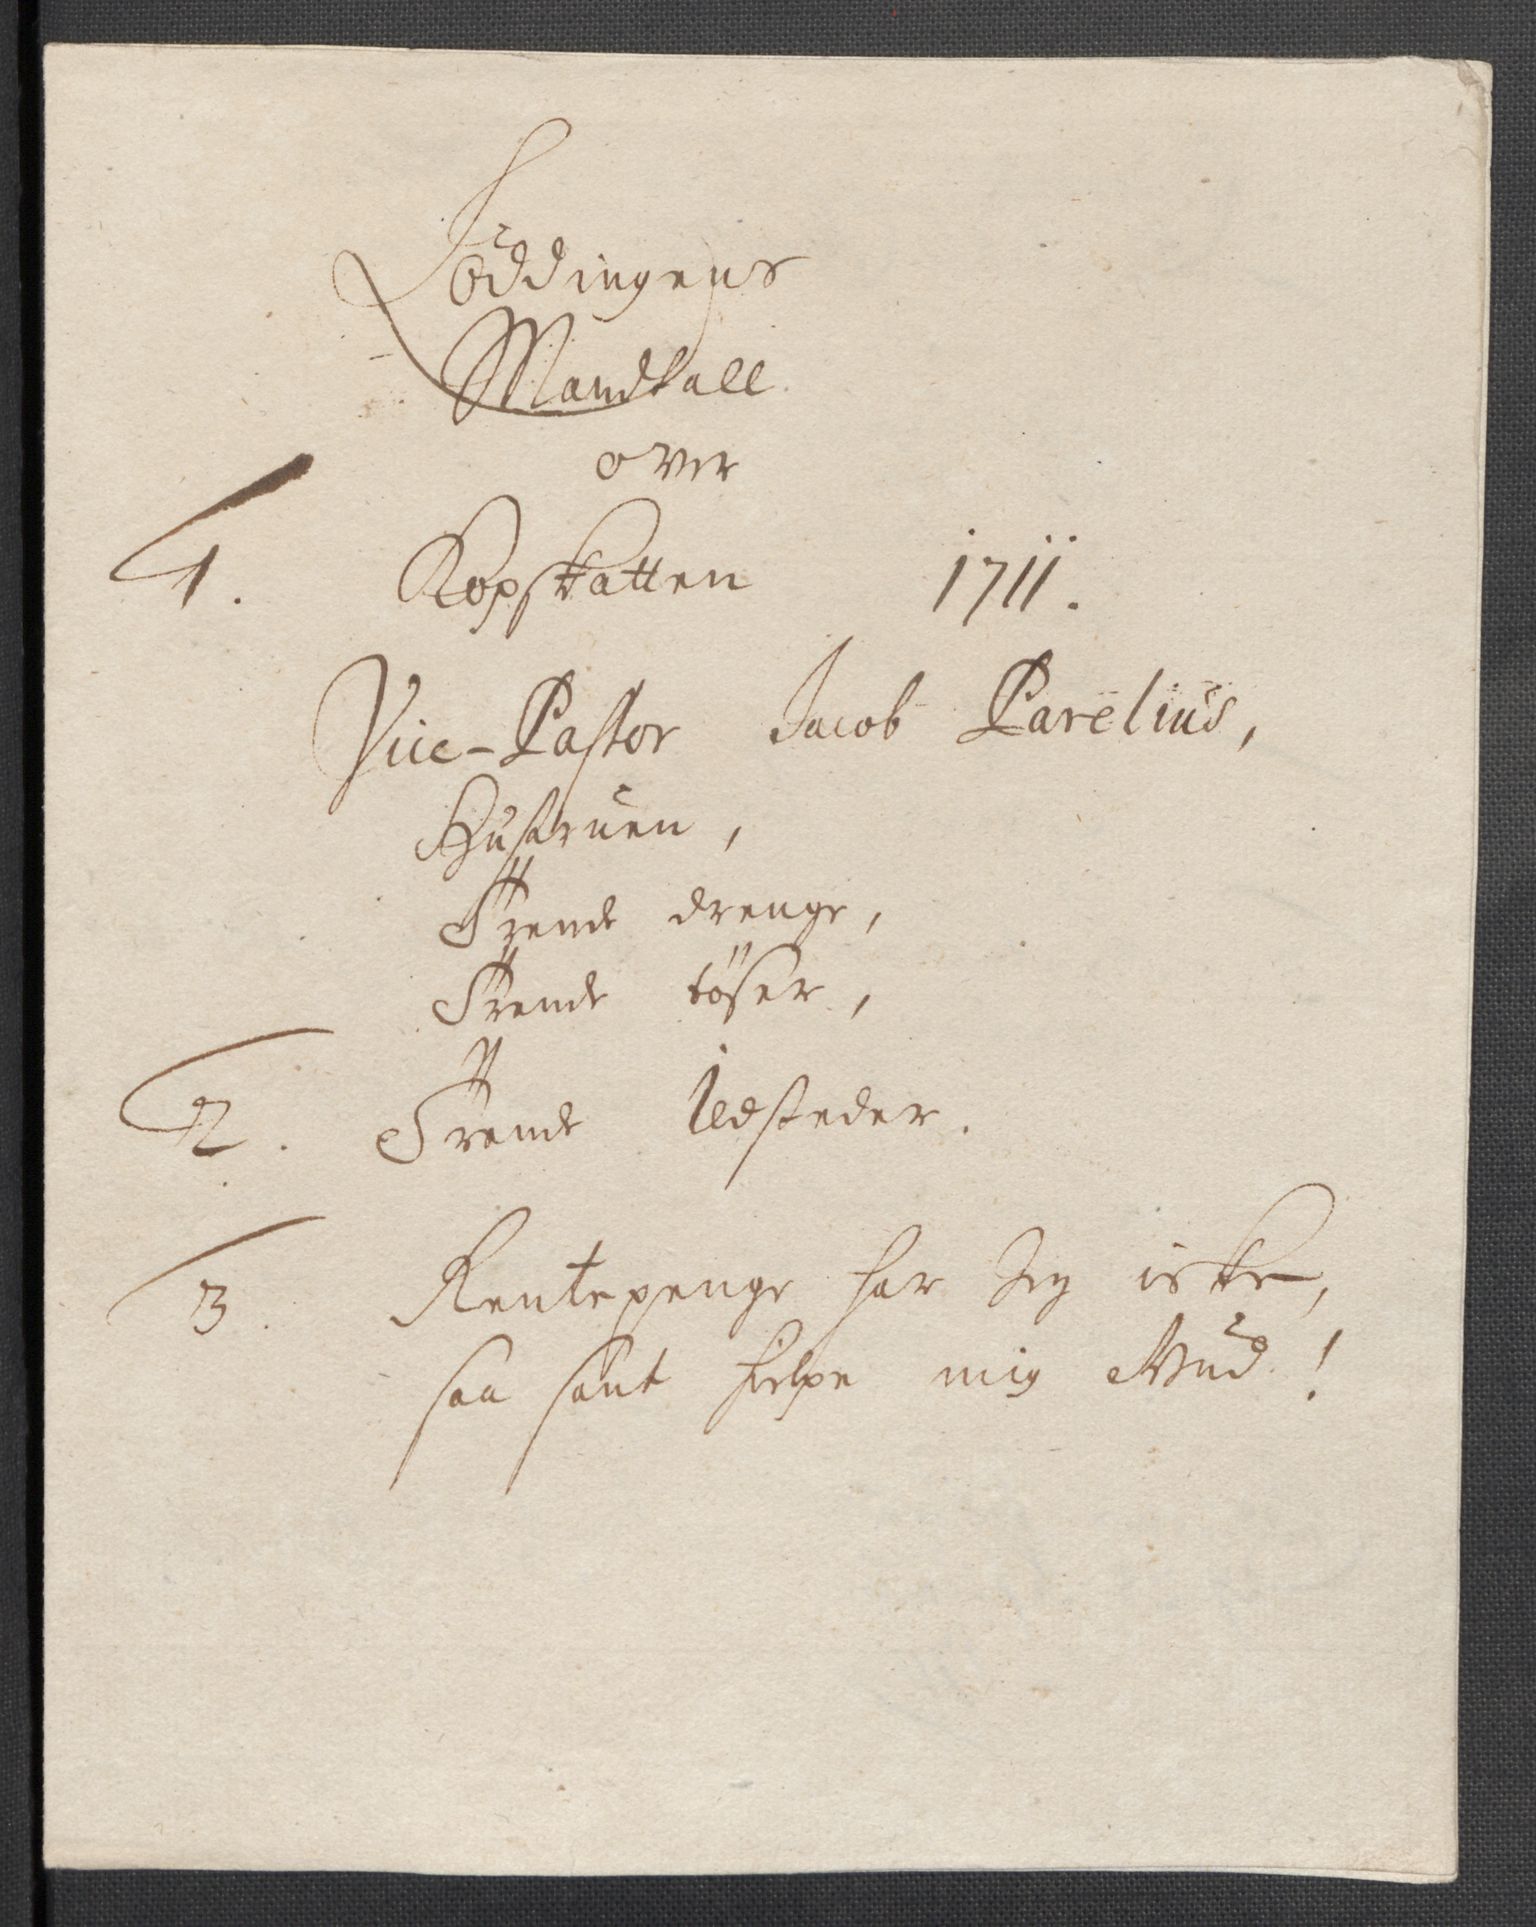 Löddingens
Mandtall
over
1. Kopskatten 1711.
Vice-Pastor Jacob Parelius,
Hustruen,
Trende drenge,
Trende töser,
2. Trende Udsteder.
3. Rentepenge har Jeg icke,
saa sant hielpe mig Gud!